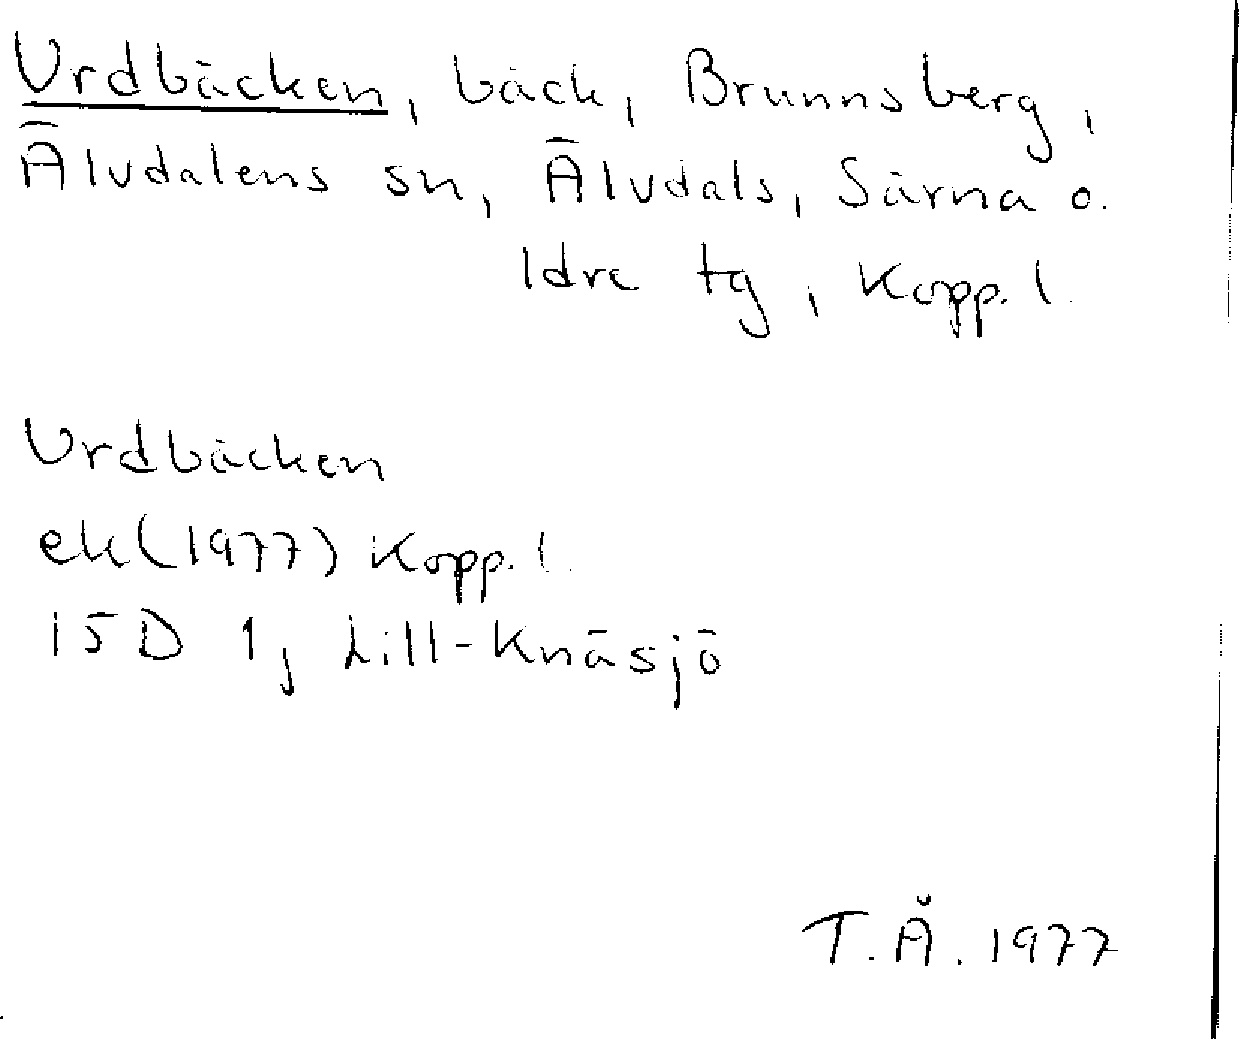 Urdbäcken, bäck, Brunnsberg,
Älvdalens sn, Älvdals, Särna o.
Idre tg, Kopp. l.
Urdbäcken
ek(1977) Kopp. l.
15D 1j Lill-Knäsjö
T.Å. 1977